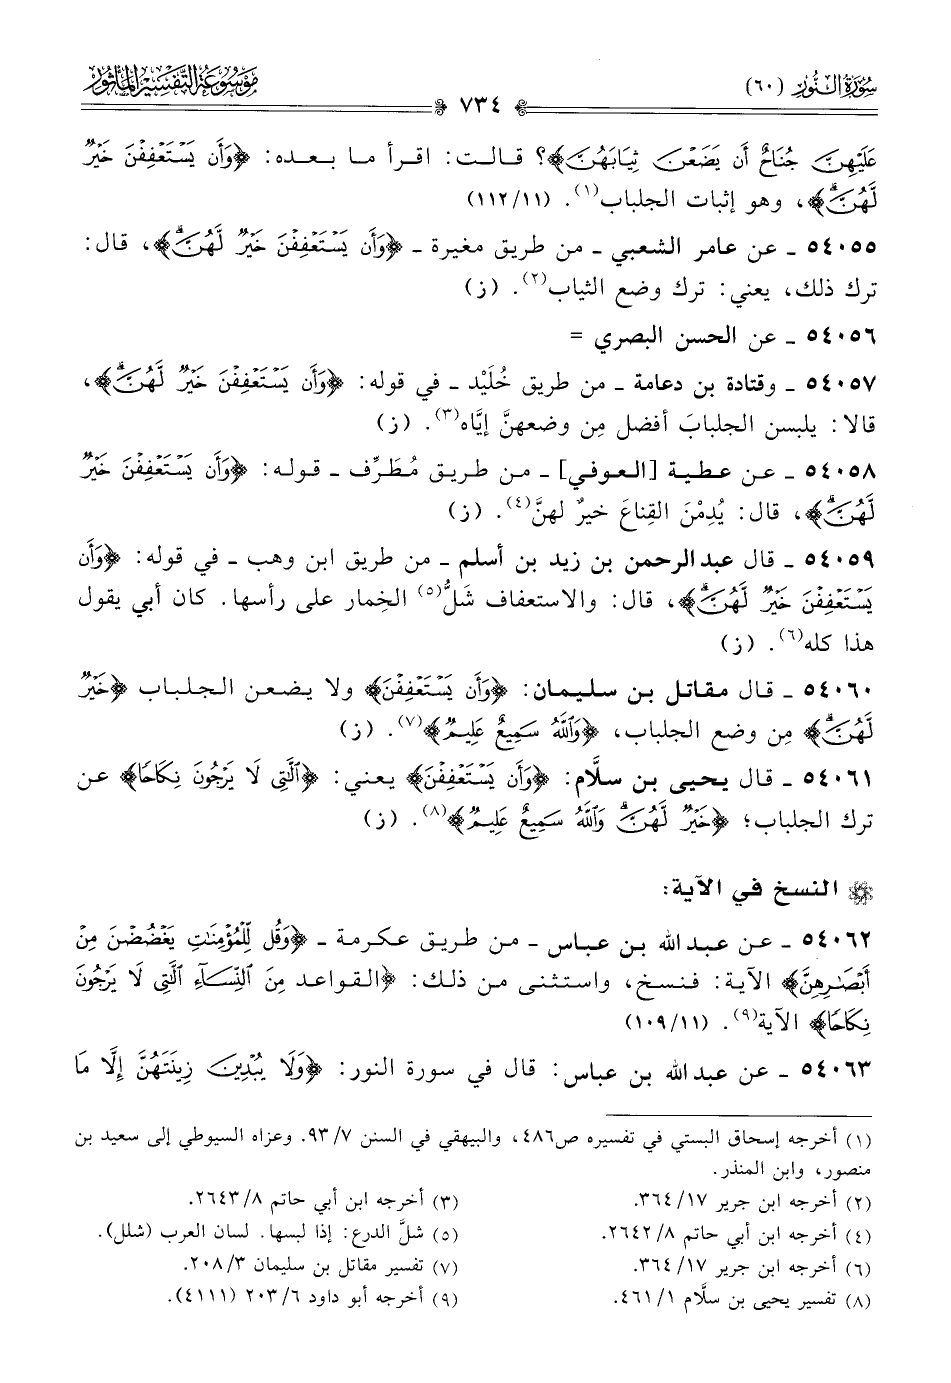 سُورَةُ النُّورِ (٦٠)
٧٣٤
مَوْسُوعَةُ التَّفْسِيرِ المَأْثُورِ
عَلَيْهِنَّ جُنَاحٌ أَن يَضَعْنَ ثِيَابَهُنَّ﴾؟ قالت: اقرأ ما بعده: ﴿وَأَن يَسْتَعْفِفْنَ خَيْرٌ
لَّهُنَّ﴾، وهو إثبات الجلباب(١). (١١/ ١١٢)
٥٤٠٥٥ ـ عن عامر الشعبي ـ من طريق مغيرة ـ ﴿وَأَن يَسْتَعْفِفْنَ خَيْرٌ لَّهُنَّ﴾، قال:
ترك ذلك، يعني: ترك وضع الثياب(٢). (ز)
٥٤٠٥٦ ـ عن الحسن البصري =
٥٤٠٥٧ ـ وقتادة بن دعامة ـ من طريق خُلَيْد ـ في قوله: ﴿وَأَن يَسْتَعْفِفْنَ خَيْرٌ لَّهُنَّ﴾،
قالا: يلبسن الجلبابَ أفضل مِن وضعهنَّ إيَّاه(٣). (ز)
٥٤٠٥٨ ـ عن عطية [العوفي] ـ من طريق مُطَرِّف ـ قوله: ﴿وَأَن يَسْتَعْفِفْنَ خَيْرٌ
لَّهُنَّ﴾، قال: يُدْمْنَ القِناعَ خيرٌ لهنَّ(٤). (ز)
٥٤٠٥٩ ـ قال عبد الرحمن بن زيد بن أسلم ـ من طريق ابن وهب ـ في قوله: ﴿وَأَن
يَسْتَعْفِفْنَ خَيْرٌ لَّهُنَّ﴾، قال: والاستعفاف شَلُّ(٥) الخِمار على رأسها. كان أبي يقول
هذا كله(٦). (ز)
٥٤٠٦٠ ـ قال مقاتل بن سليمان: ﴿وَأَن يَسْتَعْفِفْنَ﴾ ولا يضعن الجلباب ﴿خَيْرٌ
لَّهُنَّ﴾ مِن وضع الجلباب، ﴿وَاللَّهُ سَمِيعٌ عَلِيمٌ﴾(٧). (ز)
٥٤٠٦١ ـ قال يحيى بن سلَّام: ﴿وَأَن يَسْتَعْفِفْنَ﴾ يعني: ﴿الَّتِي لَا يَرْجُونَ نِكَاحًا﴾ عن
ترك الجلباب؛ ﴿خَيْرٌ لَّهُنَّ وَاللَّهُ سَمِيعٌ عَلِيمٌ﴾(٨). (ز)
النسخ في الآية:
٥٤٠٦٢ ـ عن عبد الله بن عباس ـ من طريق عكرمة ـ ﴿وَقُل لِّلْمُؤْمِنَاتِ يَغْضُضْنَ مِنْ
أَبْصَارِهِنَّ﴾ الآية: فنسخ، واستثنى من ذلك: ﴿القواعد مِنَ النِّسَاءِ الَّتِي لَا يَرْجُونَ
نِكَاحًا﴾ الآية(٩). (١١/ ١٠٩)
٥٤٠٦٣ ـ عن عبد الله بن عباس: قال في سورة النور: ﴿وَلَا يُبْدِينَ زِينَتَهُنَّ إِلَّا مَا
(١) أخرجه إسحاق البستي في تفسيره ص٤٨٦، والبيهقي في السنن ٧/ ٩٣. وعزاه السيوطي إلى سعيد بن
منصور، وابن المنذر.
(٢) أخرجه ابن جرير ١٧/ ٣٦٤.
(٣) أخرجه ابن أبي حاتم ٨/ ٢٦٤٣.
(٤) أخرجه ابن أبي حاتم ٨/ ٢٦٤٢.
(٥) شلَّ الدرع: إذا لبسها. لسان العرب (شلل).
(٦) أخرجه ابن جرير ١٧/ ٣٦٤.
(٧) تفسير مقاتل بن سليمان ٣/ ٢٠٨.
(٨) تفسير يحيى بن سلَّام ١/ ٤٦١.
(٩) أخرجه أبو داود ٦/ ٢٠٣ (٤١١١).